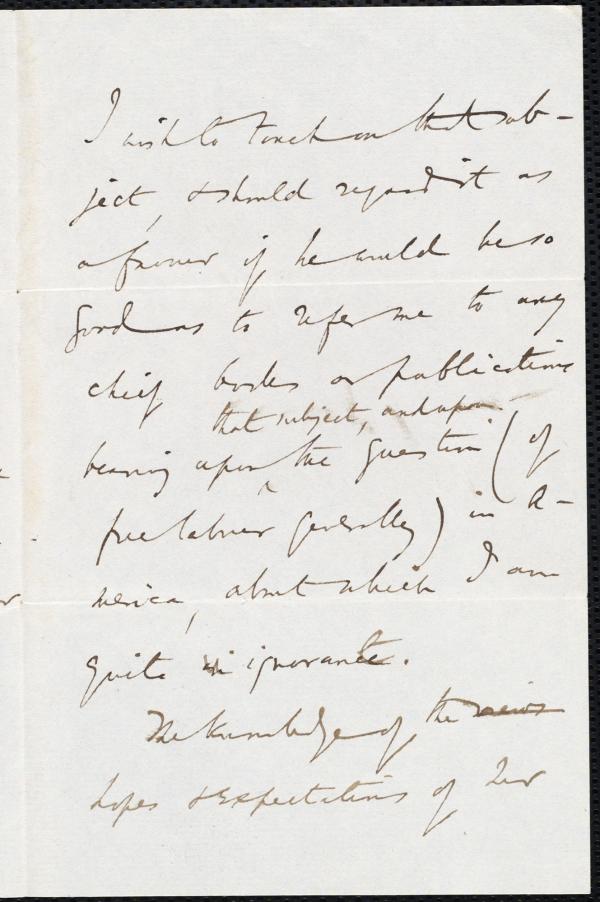 I wish to touch on that sub-
ject, & should regard it as
a favour if he would be so
good as to refer me to any
chief books or publications
that subject, and upon
bearing upon the question (of
free labour generally) in A-
merica, about which I am
quite in ignorance.
The knowledge of the views
hopes & expectations of